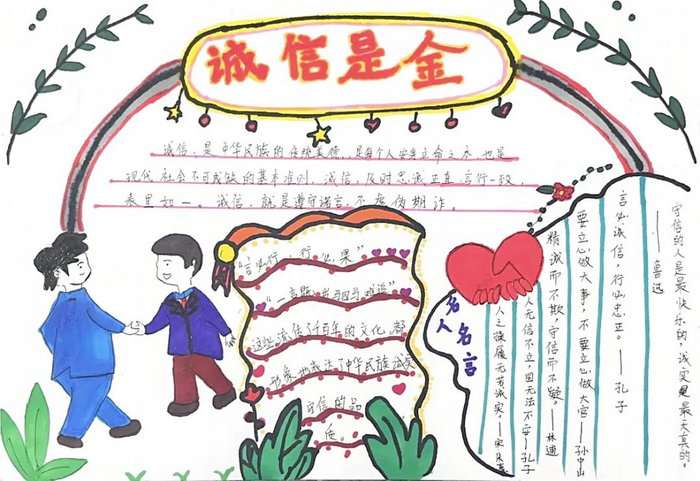 诚信是金
诚信,是中华民族的传统美德,是每个人安身立命之本,也是
现代社会不可或缺的基本准则。诚信,及对忠诚正直,言行一致
表里如一。诚信,就是遵守诺言,不虚伪欺诈。
"言必行,行必果"
"一言既出驷马难追"
这些流传了千百年的文化,都
形象地表达了中华民族诚实
守信的品
质。
名人名言
守信的人是最快乐的,诚实是最天真的。
——鲁迅
言必诚信,行必忠正。——孔子
要立心做大事,不要立心做大官——孙中山
精诚而不欺,守信而不疑。——林逋
人无信不立,国无法不安——孔子
人之旅展无若诚实,——宋